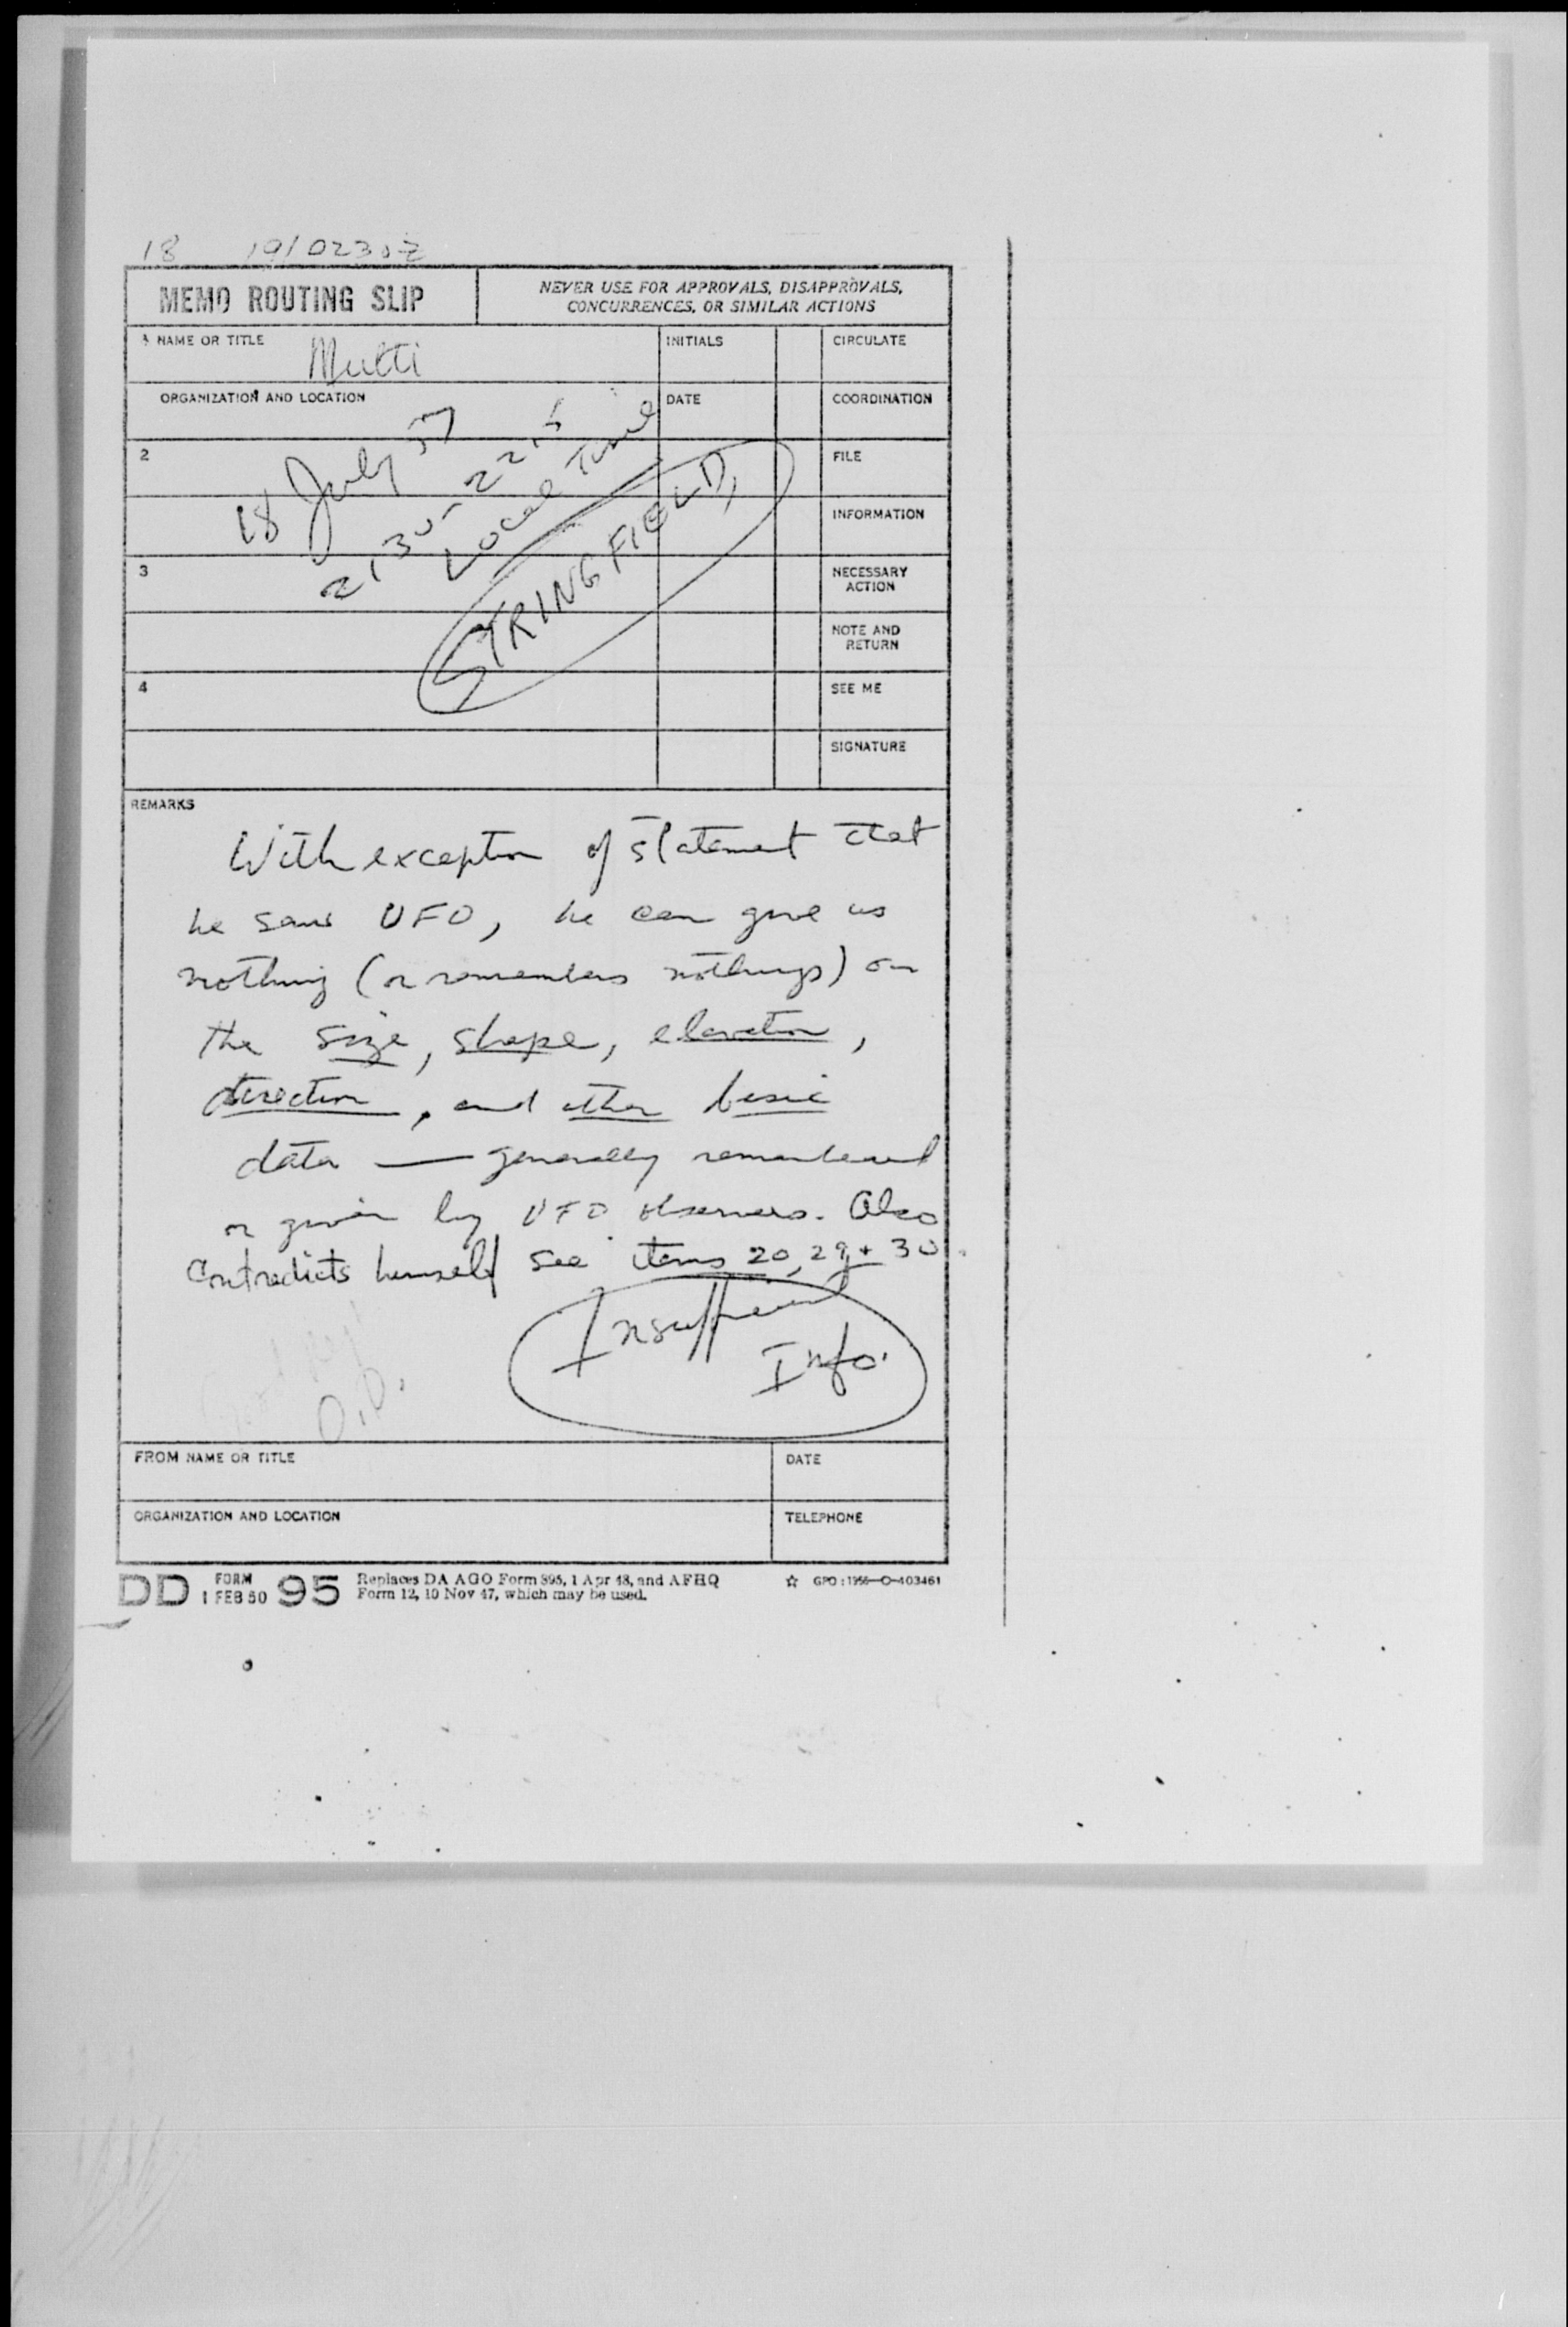 18 19/0230Z
MEMO ROUTING SLIP
NEVER USE FOR APPROVALS, DISAPPROVALS,
CONCURRENCES, OR SIMILAR ACTIONS
1 NAME OR TITLE
Multi
INITIALS
CIRCULATE
ORGANIZATION AND LOCATION
DATE
COORDINATION
18 July 57
2130-2215
Local Time
STRINGFIELD,
2
FILE
INFORMATION
3
NECESSARY
ACTION
NOTE AND
RETURN
4
SEE ME
SIGNATURE
REMARKS
With exception of statement that
he saw UFO, he can give us
nothing (or remembers nothings) on
the size, shape, elevation,
direction, and other basic
data — generally remembered
or given by UFO observers. Also
Contradicts himself see items 20, 29 + 30.
Insufficient
Info.
O.D.
FROM NAME OR TITLE
DATE
ORGANIZATION AND LOCATION
TELEPHONE
DD FORM 95
1 FEB 50
Replaces DA AGO Form 895, 1 Apr 48, and AFHQ
Form 12, 10 Nov 47, which may be used.
☆ GPO : 1956—O-403461